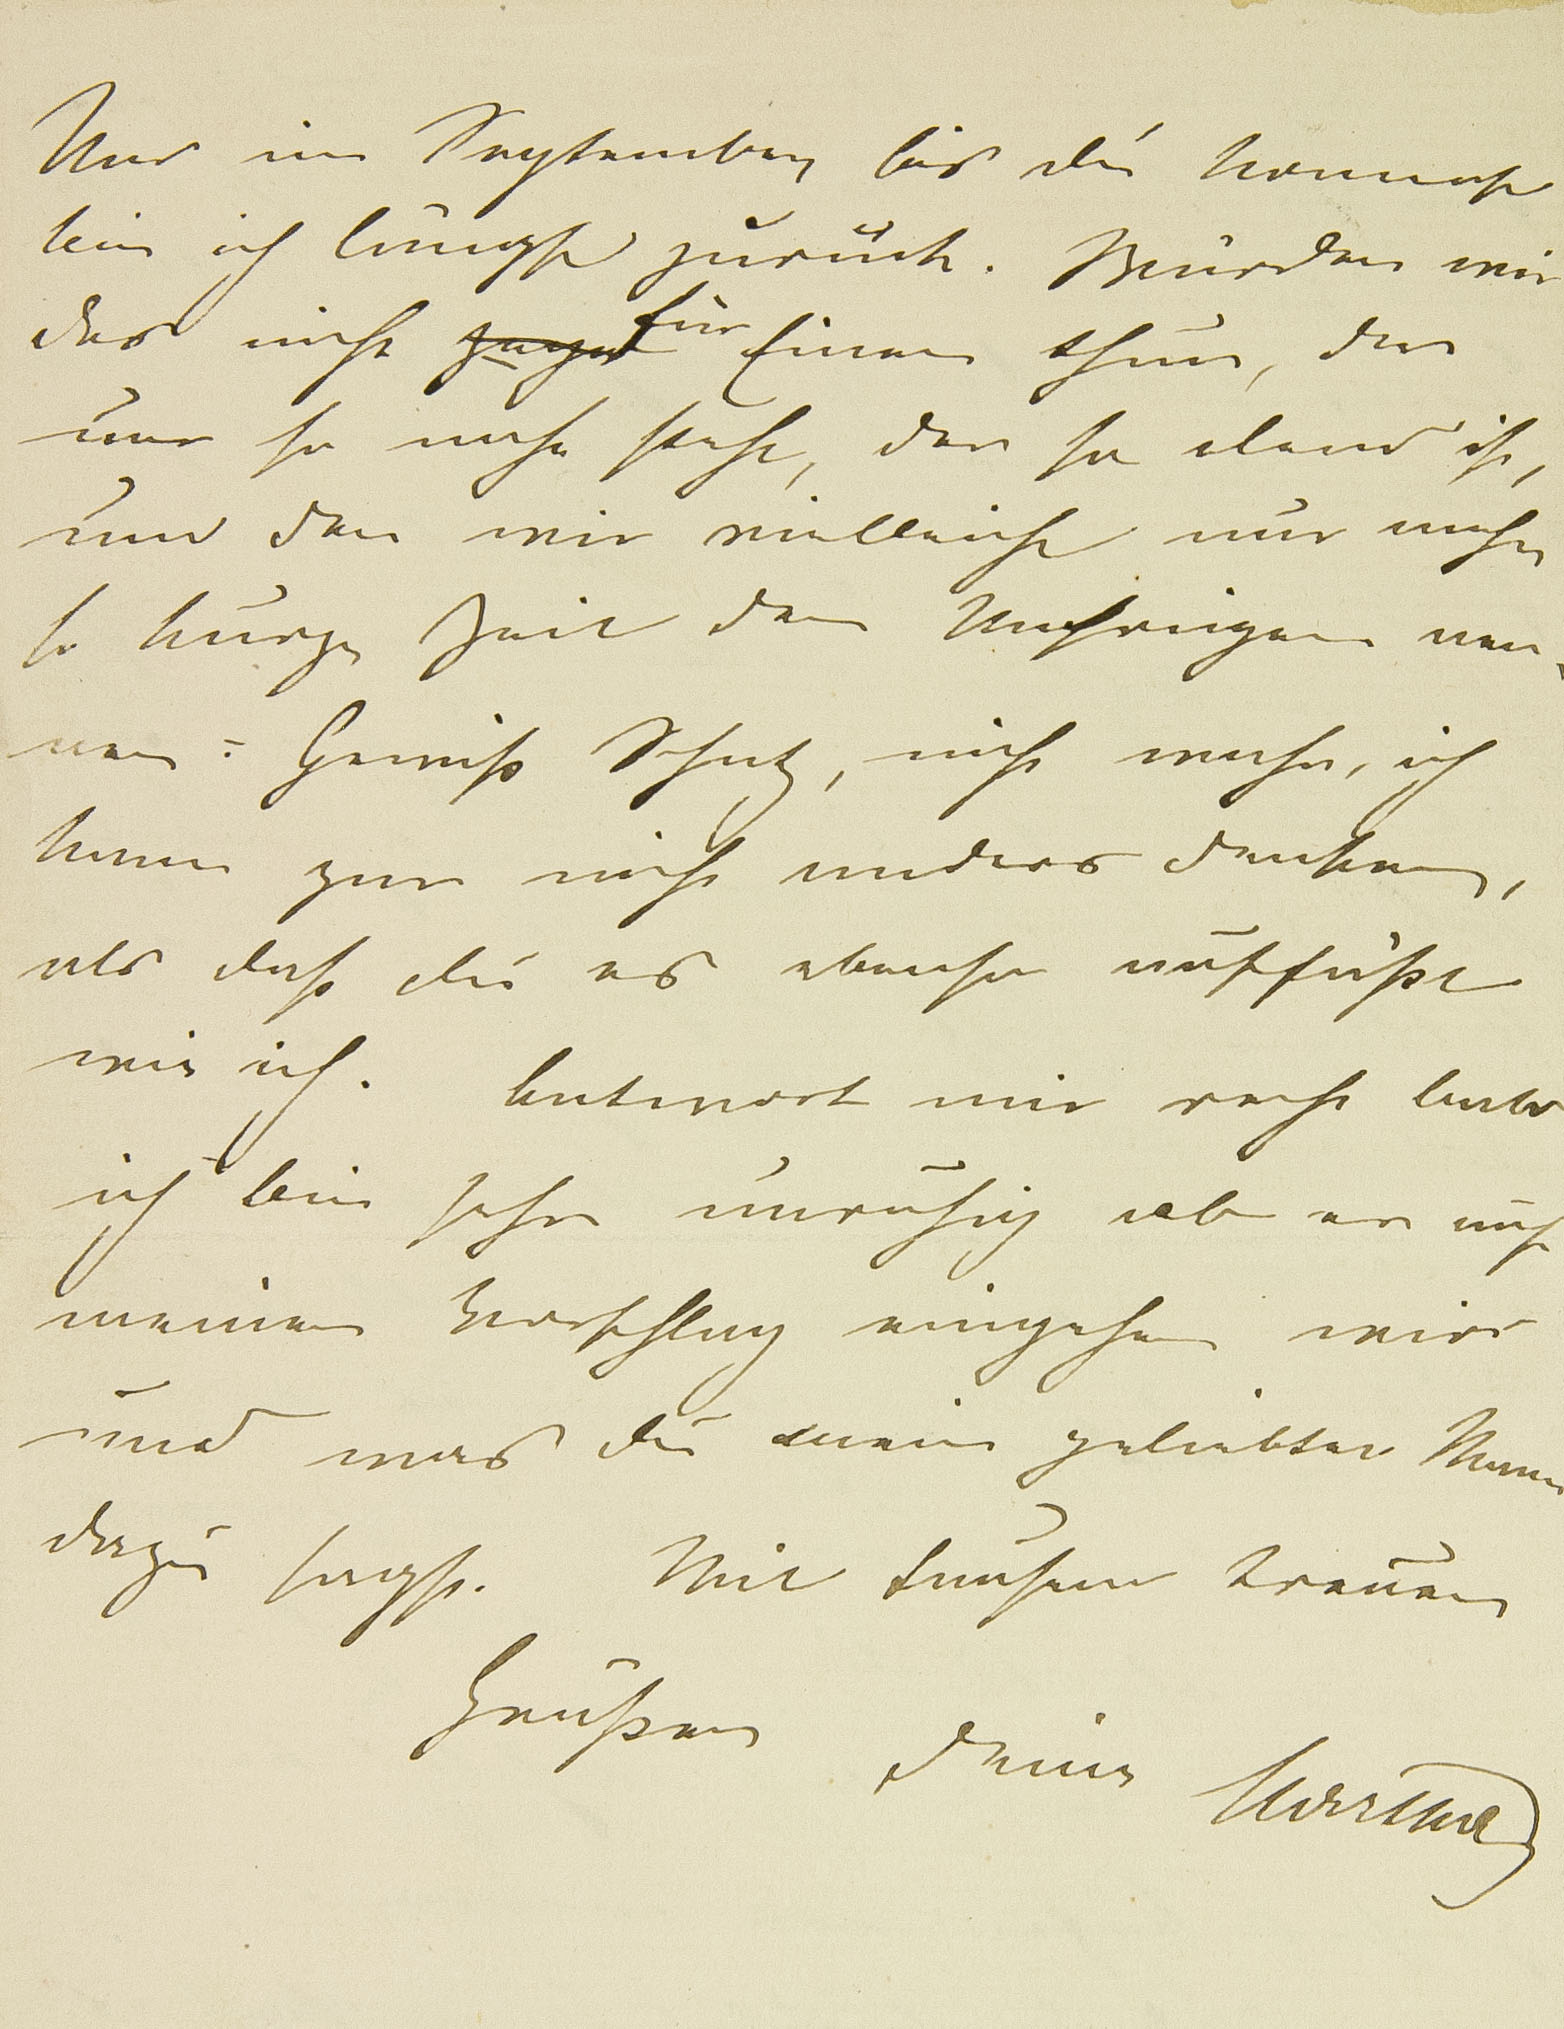 Und im September bis du kommst
bin ich längst zurück. Würden wir
das nicht für Einen thun, der
uns so nahe steht, der so elend ist,
und den wir vielleicht nur mehr
so kurze Zeit den Unsrigen nen¬
nen = Gewiß Schatz, nicht wahr, ich
kann gar nicht anders denken,
als daß du es ebenso auffaßt
wie ich. Antwort mir recht bald
ich bin sehr unruhig ob er auf
meinen Vorschlag eingehen wird
und was du mein geliebter Mann
dazu sagst. Mit tausend treuen
Grüßen deine Martha